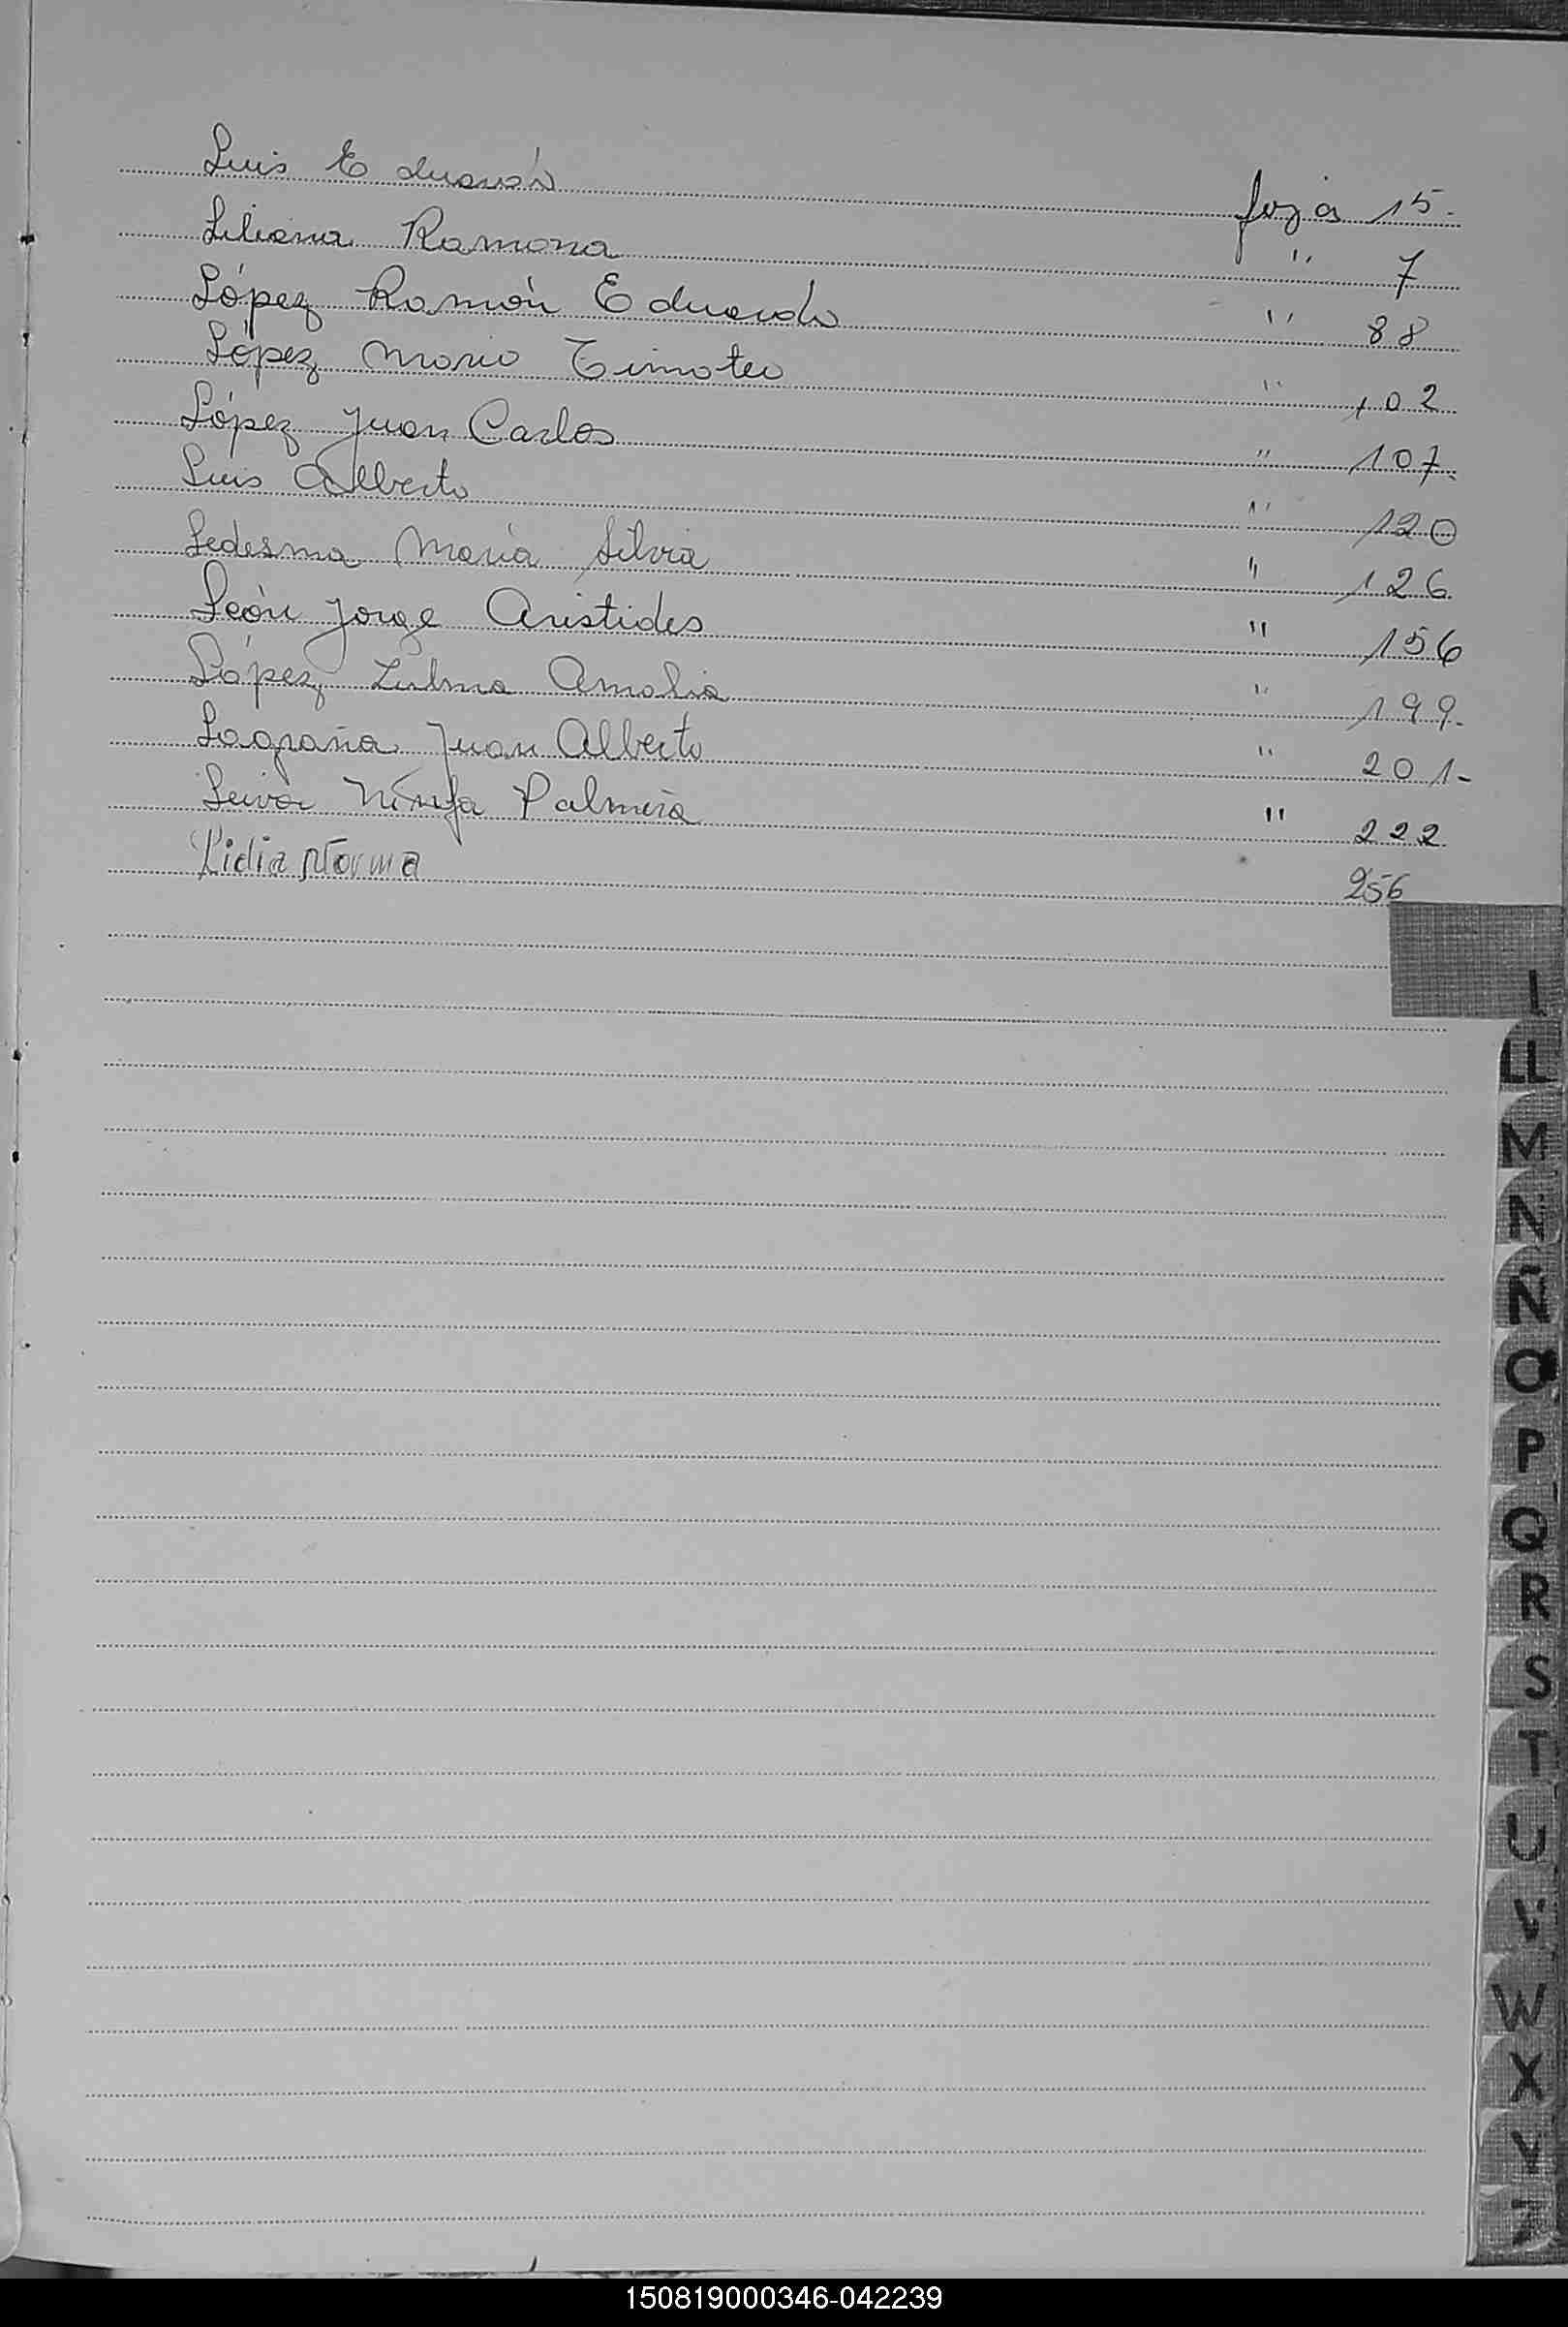 Luis Eduardo foja 15.
Liliana Ramona " 7
López Ramón Eduardo " 88
López Mario Timoteo " 102
López Juan Carlos " 107.
Luis Alberto " 120
Ledesma María Silvia " 126
León Jorge Aristides " 156
López Zulma Amalia " 199.
Lagraña Juan Alberto " 201-
Leiva Ninfa Palmira " 222
Lidia Norma 256
L
LL
M
N
Ñ
O
P
Q
R
S
T
U
V
W
X
Y
Z
150819000346-042239